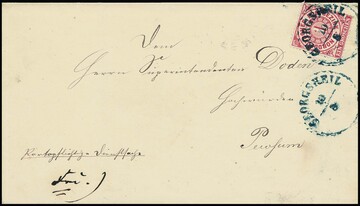 GEORGSHEIL
Dem
Herrn Superintendenten Doden
GEORGSHEIL
Hochwürden
Pewsum
Portopflichtige Dienstsache